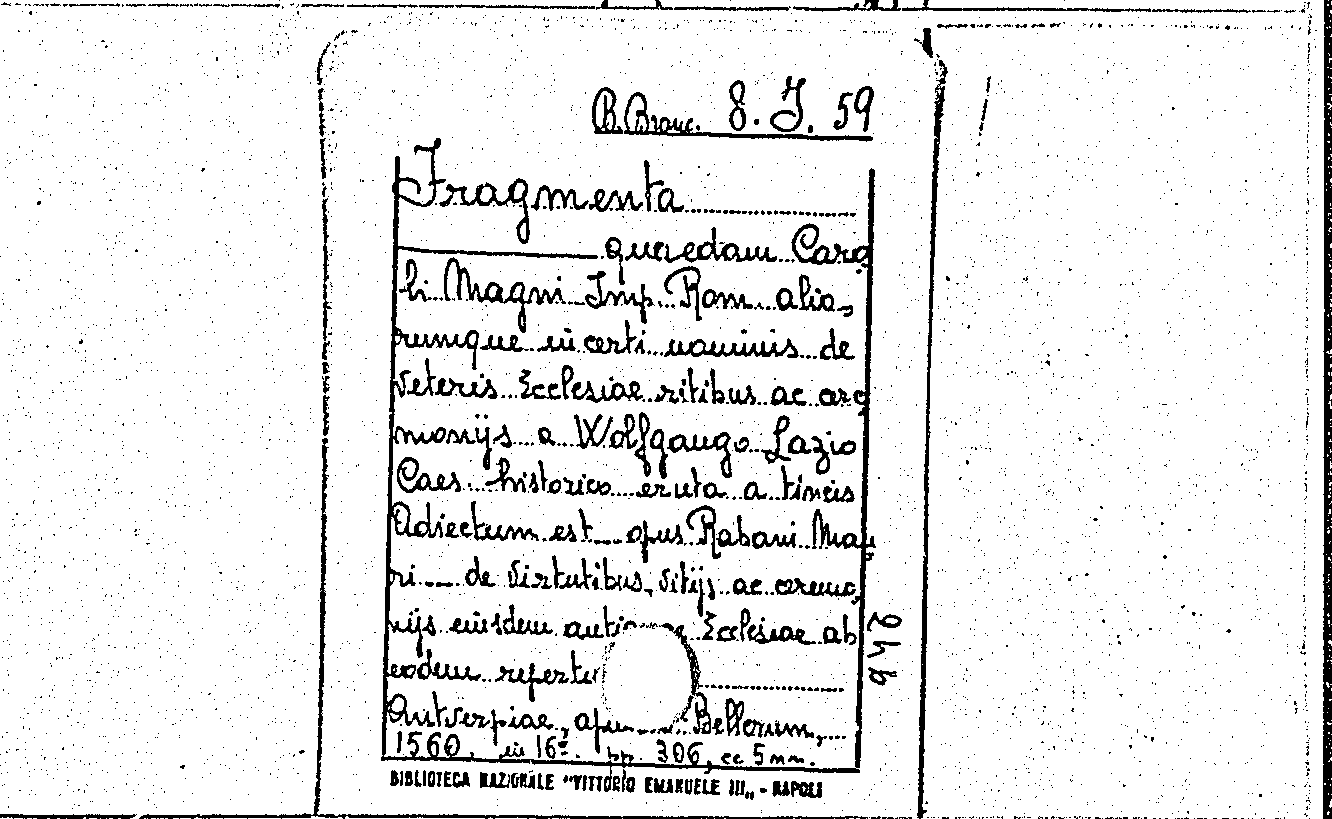 B. Branc. 8. J. 59
Fragmenta
quaedam Caro
li Magni Imp. Rom. alio,
rumque incerti nominis de
veteris Ecclesiae ritibus ac cere
monijs a Wolfgango Lazio
Caes. historico eruta a tineis
Adiectum est opus Rabani Mau
ri de Virtutibus, Vitijs ac ceremo,
nijs eiusdem Ecclesiae ab
eodem
Antverpiae, Bellerum,
1560. in 16º. pp. 306, cc 5 nn.
BIBLIOTECA NAZIONALE "VITTORIO EMANUELE III" - NAPOLI